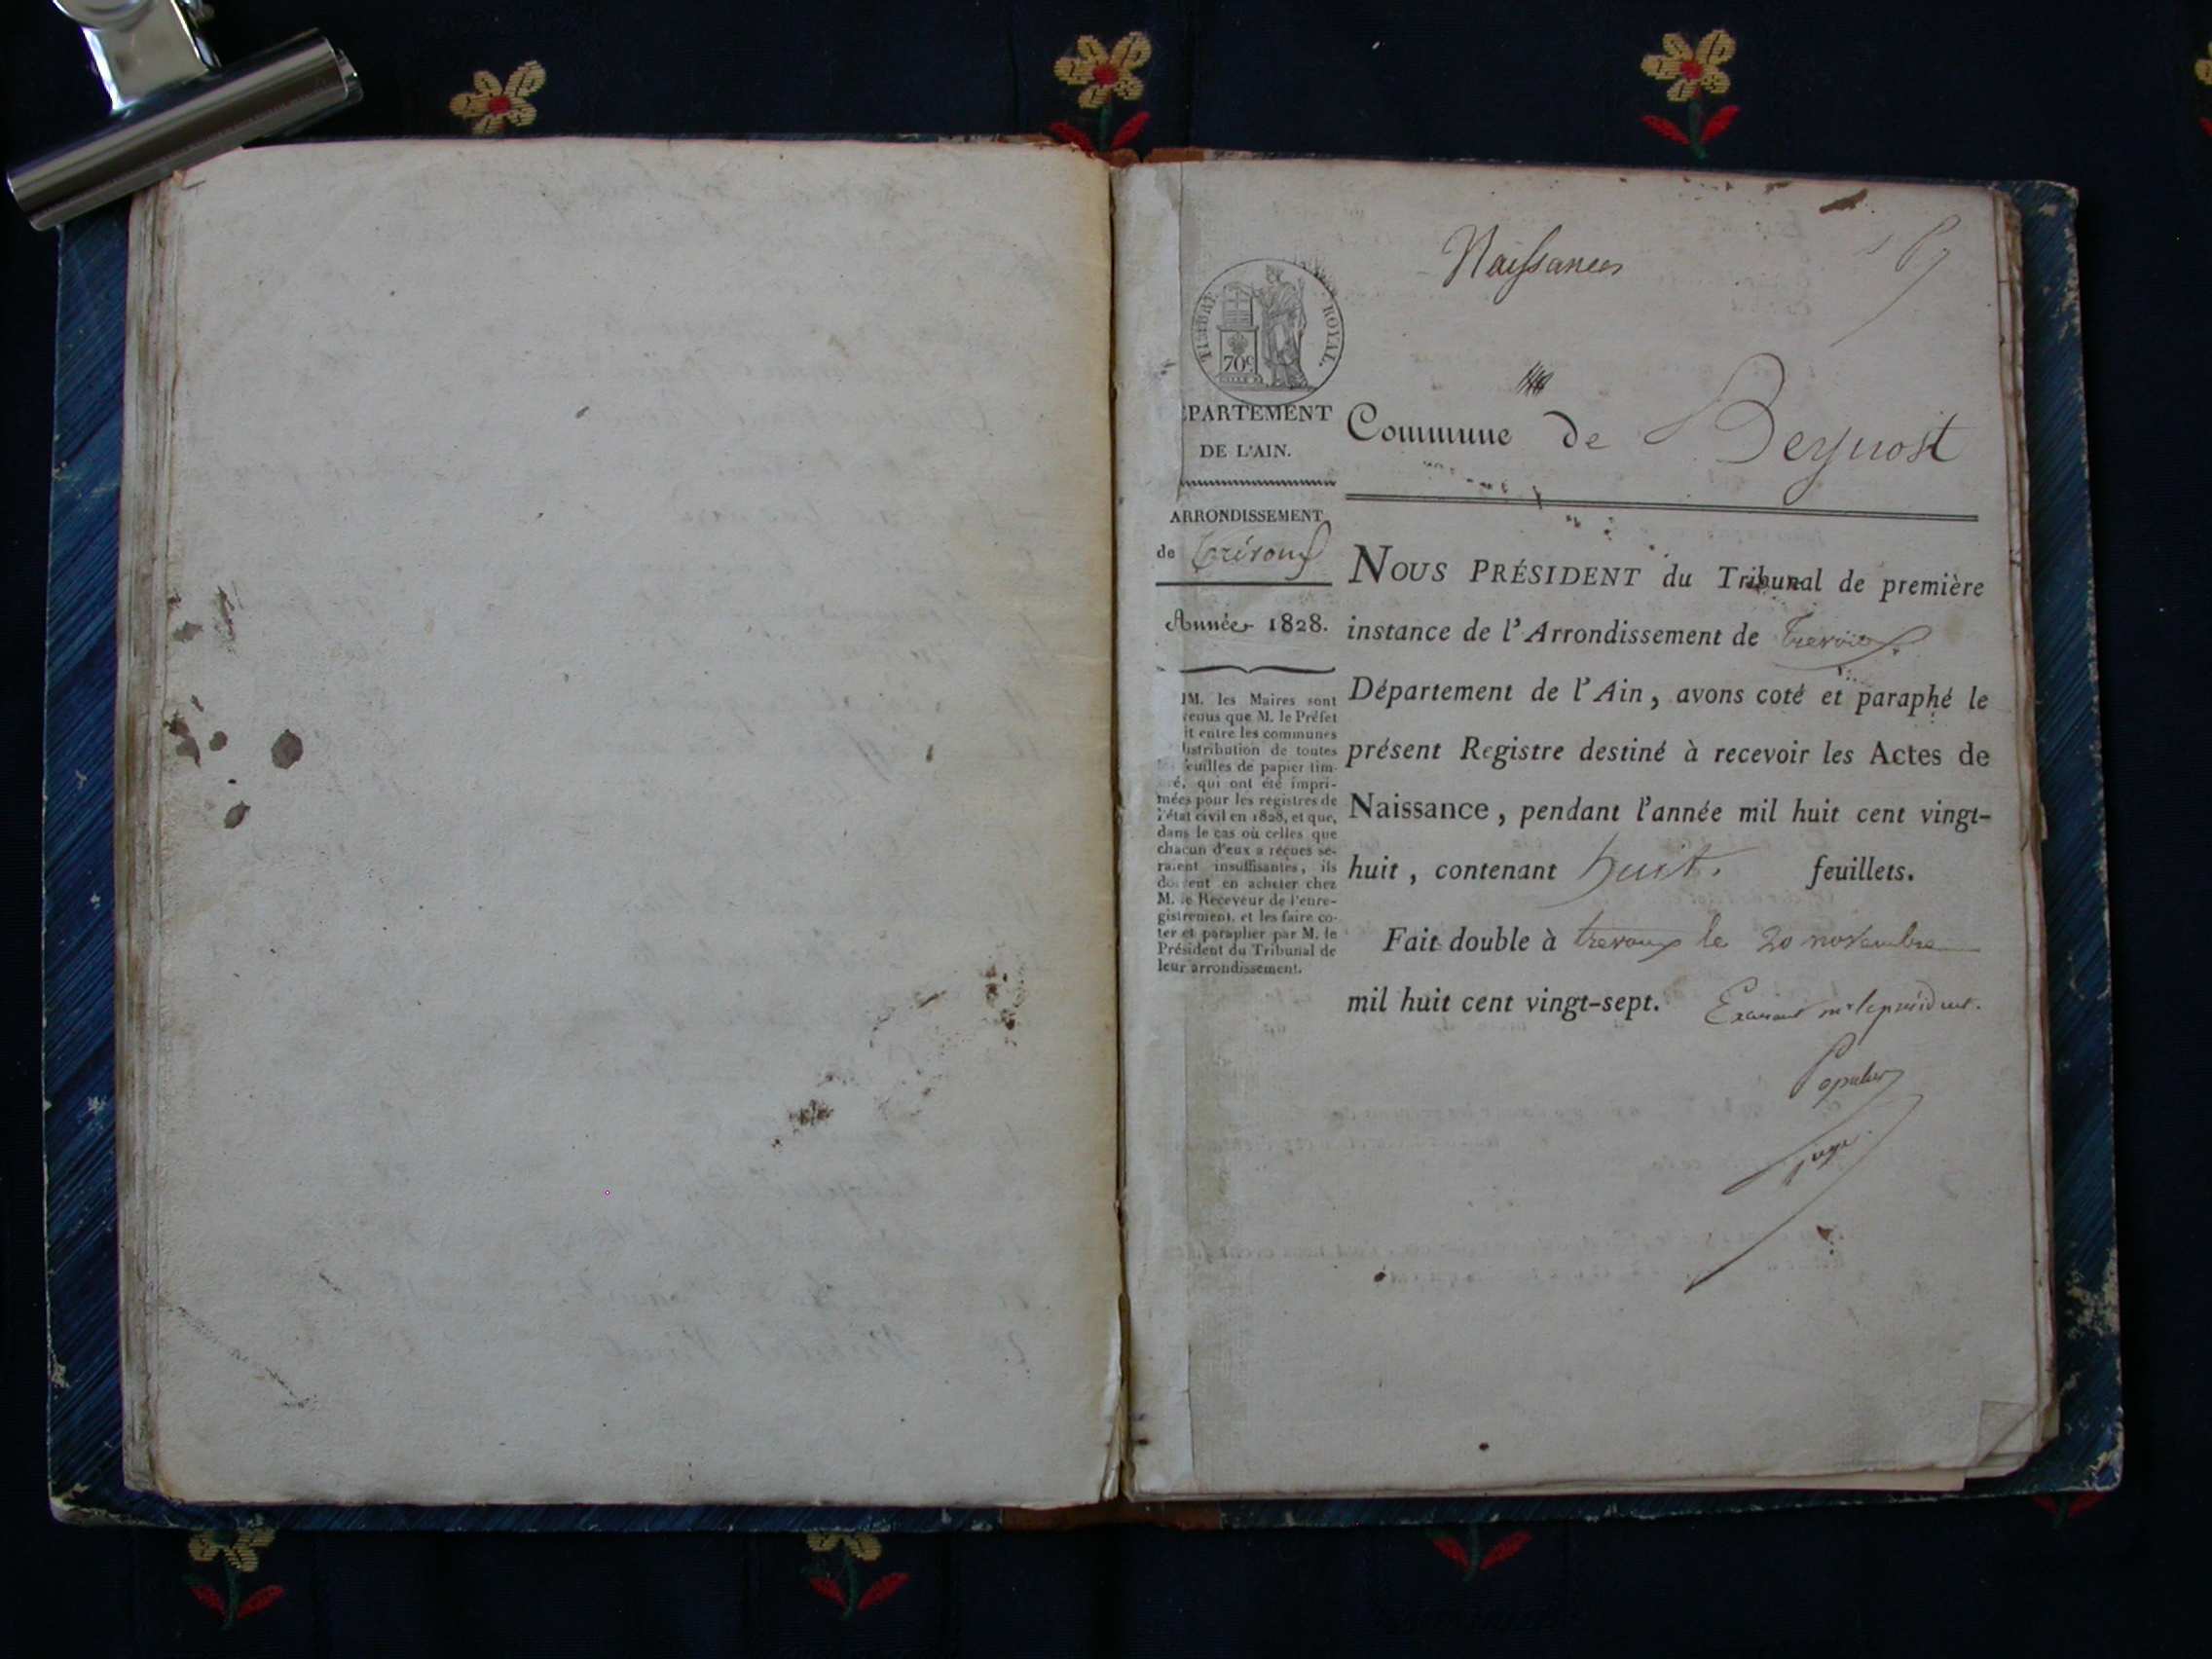 Naissances
TIMBRE ROYAL.
70c
EPARTEMENT
DE L'AIN.
Commune de Beynost
ARRONDISSEMENT
de Trévoux
Année 1828.
MM. les Maires sont
tenus que M. le Préfet
it entre les communes
istribution de toutes
feuilles de papier tim-
é, qui ont été impri-
mées pour les registres de
l'état civil en 1828, et que,
dans le cas où celles que
chacun d'eux a reçues se-
raient insuffisantes, ils
doivent en acheter chez
M. le Receveur de l'enre-
gistrement, et les faire co-
ter et parapher par M. le
Président du Tribunal de
leur arrondissement.
NOUS PRÉSIDENT du Tribunal de première
instance de l'Arrondissement de Trevoux
Département de l'Ain, avons coté et paraphé le
présent Registre destiné à recevoir les Actes de
Naissance, pendant l'année mil huit cent vingt-
huit, contenant huit. feuillets.
Fait double à trevoux le 20 novembre
mil huit cent vingt-sept. le président.
juge